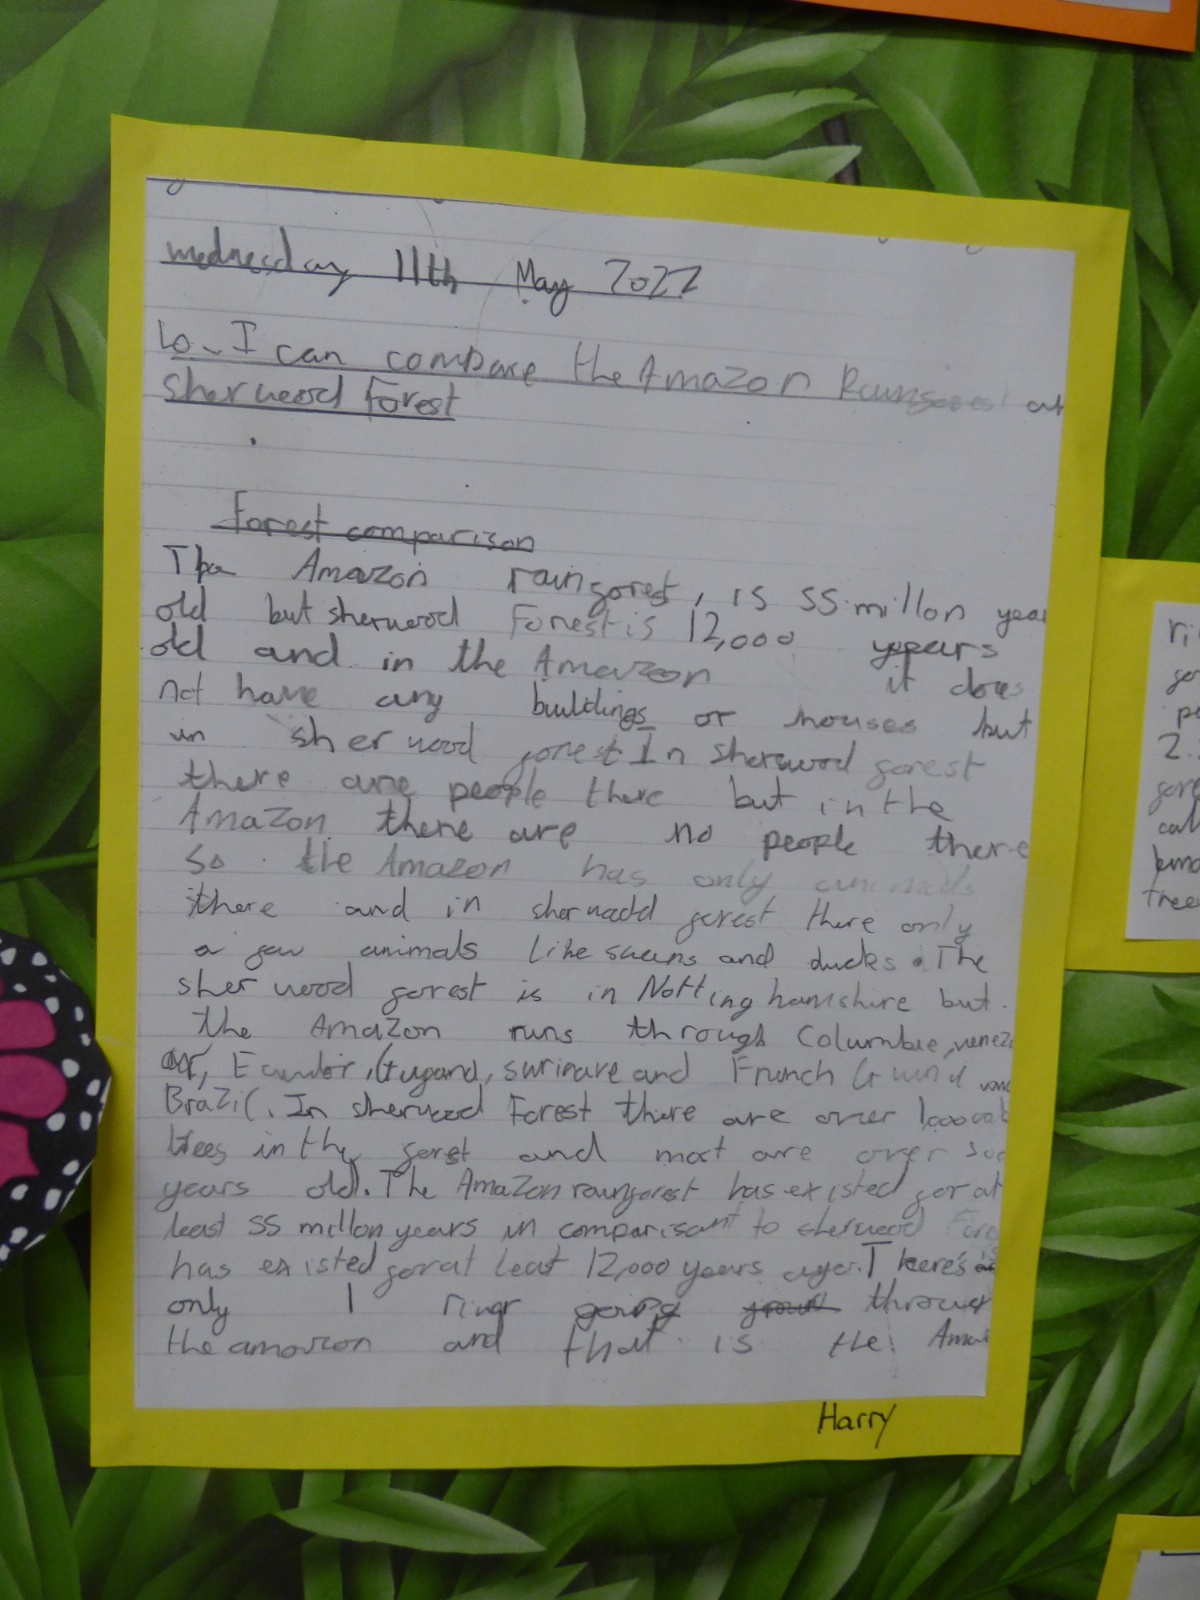 wednesday 11th May 2022
Lo - I can compare the Amazon Rainforest
Sherwood Forest
Forest comparison
The Amazon rainforest, is 55 millon year
old but sherwood Forest is 12,000 years
old and in the Amazon it does
not have any buildings or houses but
in sherwood forest In Sherwood forest
there are people there but in the
Amazon there are no people there
So the Amazon has only animals
there and in sherwood forest there only
a few animals like swans and ducks. The
sherwood forest is in Nottinghamshire but
the Amazon runs through Columbie,
Surinare and French
Brazil. In sherwood Forest there are over
trees in the forest and most are over
years old. The Amazon rainforest has existed for at
least 55 millon years in comparisant to sherwood Fore
has existed for at least 12,000 years ago. There's is
only 1 river going
the amazon and that is the Ama
Harry